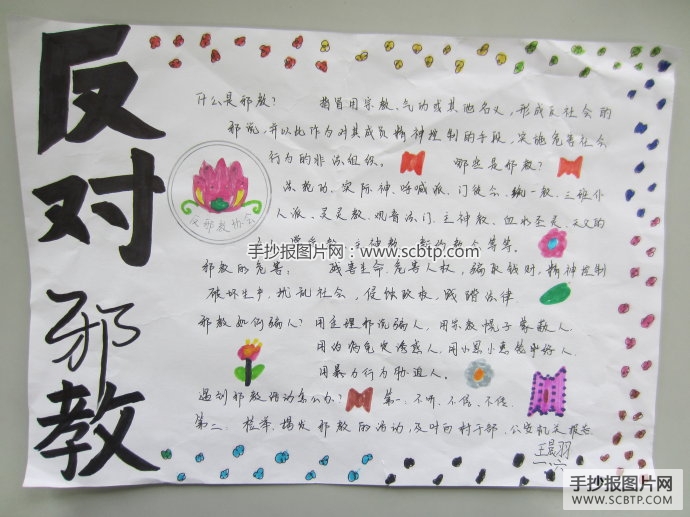 反对邪教
什么是邪教? 指冒用宗教、气功或其他名义,形成反社会的
邪说,并以此作为对其成员精神控制的手段,实施危害社会
行为的非法组织。 哪些是邪教?
法轮功、实际神、呼喊派、门徒会、统一教、三班仆
人派、灵灵教、观音法门、主神教、血水圣灵、天父的
反邪教协会
手抄报图片网:www.scbtp.com
邪教的危害: 残害生命、危害人权、骗取钱财、精神控制
破坏生产、扰乱社会、侵蚀政权、践踏法律
邪教如何骗人? 用歪理邪说骗人、用宗教幌子蒙蔽人、
用治病免灾诱惑人、用小恩小惠
用暴力行为胁迫人。
遇到邪教活动怎么办? 第一:不听、不信、不传、
第二:检举、揭发邪教的活动,及时向村干部、公安机关报告
一、六
手抄报图片网
WWW.SCBTP.COM